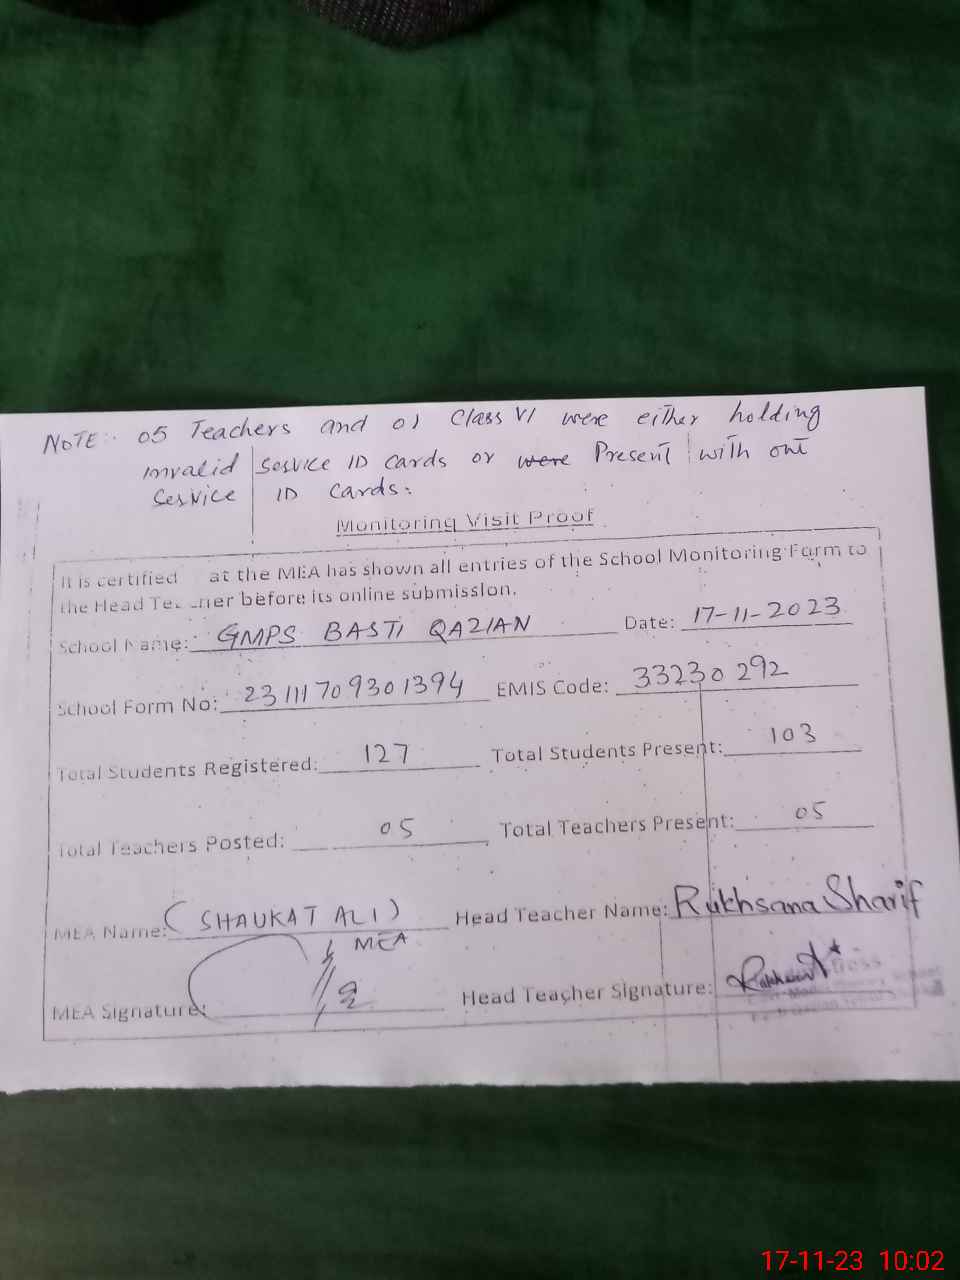 NOTE:- 05 Teachers and 01 Class VI were either holding
invalid Service ID cards or were Present with out
Service ID cards.
Monitoring Visit Proof
It is certified at the MEA has shown all entries of the School Monitoring Form to
the Head Teacher before its online submission.
School Name: GMPS BASTI QAZIAN Date: 17-11-2023
School Form No: 23111709301394 EMIS Code: 33230292
Total Students Registered: 127 Total Students Present: 103
Total Teachers Posted: 05 Total Teachers Present: 05
MEA Name: (SHAUKAT ALI) Head Teacher Name: Rukhsana Sharif
MEA
MEA Signature: Head Teacher Signature:
17-11-23 10:02